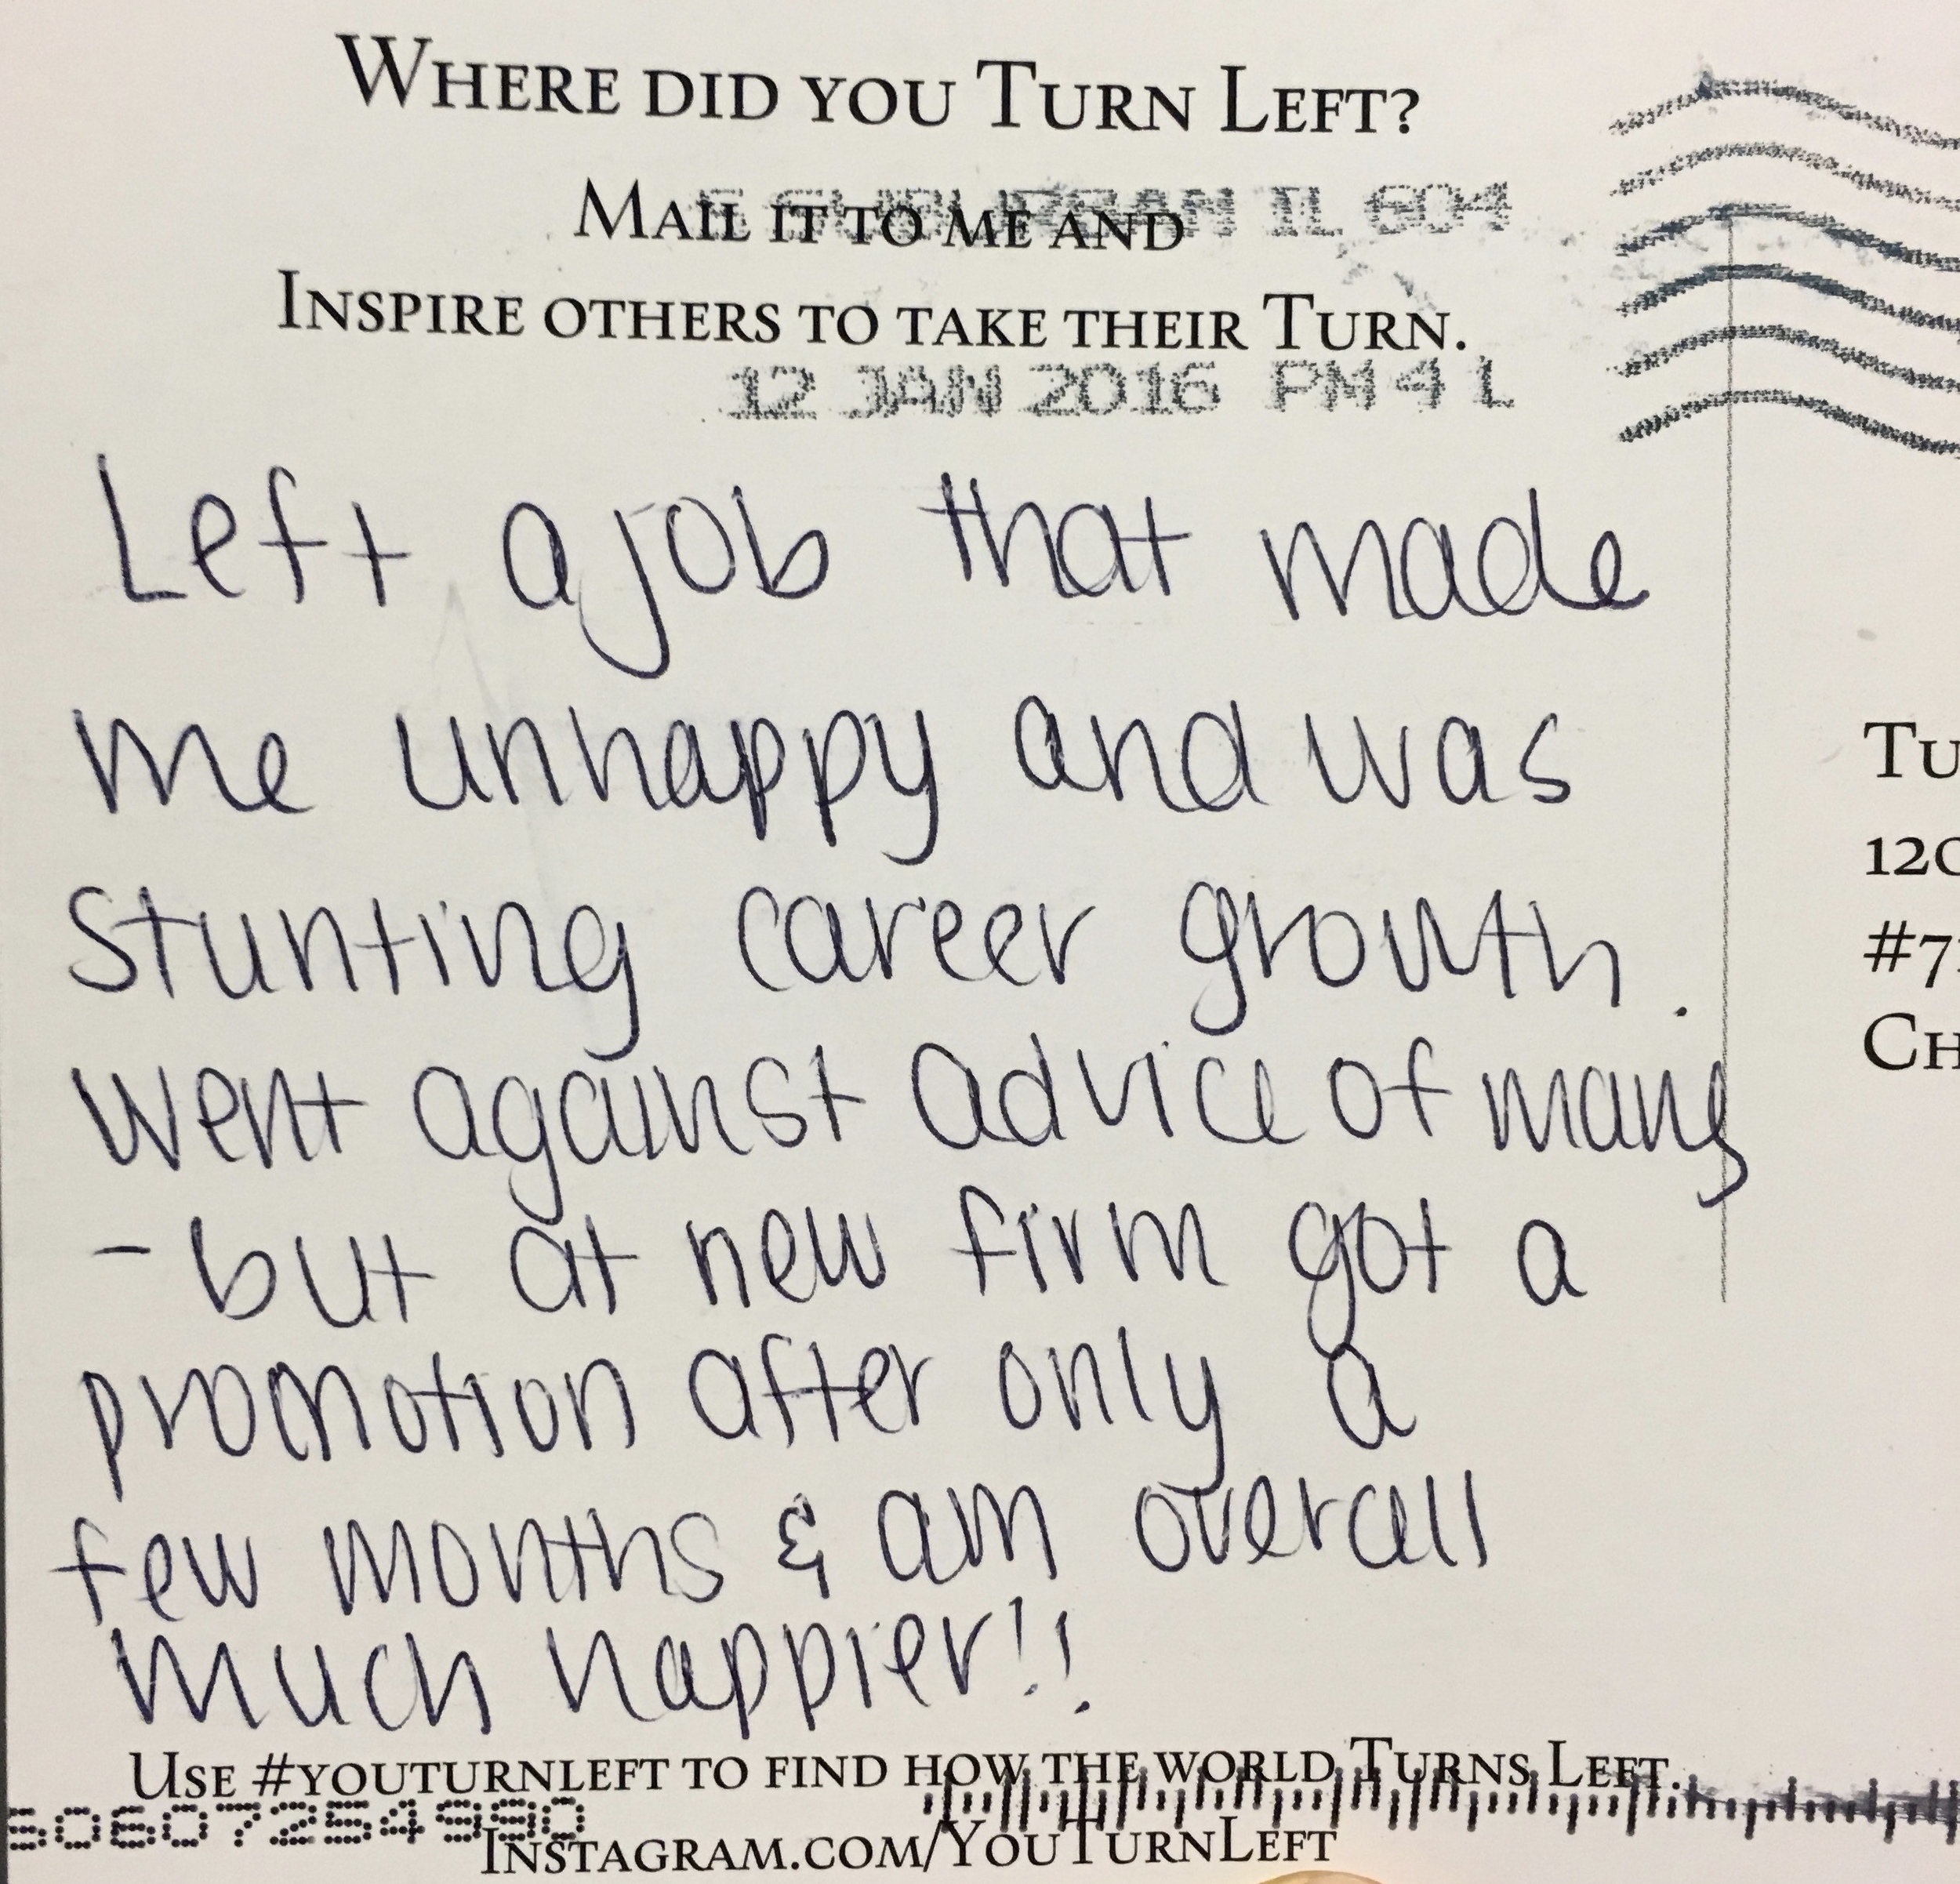 WHERE DID YOU TURN LEFT?
MAIL IT TO ME AND
S SUBURBAN IL 604
INSPIRE OTHERS TO TAKE THEIR TURN.
12 JAN 2016 PM 4 L
Left a job that made
me unhappy and was
stunting career growth.
Went against advice of many
- but at new firm got a
promotion after only a
few months & am overall
much happier!!
USE #YOUTURNLEFT TO FIND HOW THE WORLD TURNS LEFT.
5060725499
INSTAGRAM.COM/YOUTURNLEFT
TU
120
#7
CH